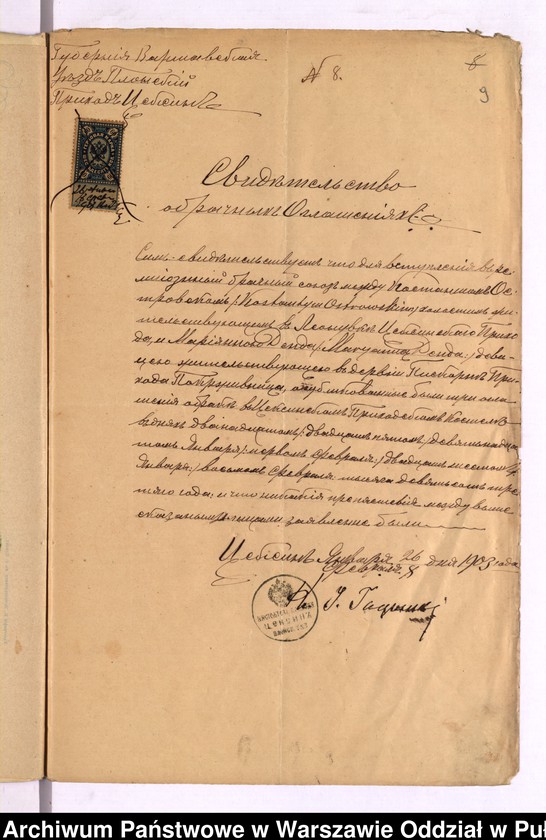 Губернія Варшавская
Уѣздъ Плонскій
Приходъ Цѣксинъ
N 8.
8
9
Свидѣтельство
обрачныхъ Оглашеніяхъ
Симъ свидѣтельствуетъ что для вступленія въ ре-
лигіозный брачный союзъ между Константиномъ Ос-
тровскимъ /Konstantym Ostrowskim/ холостымъ жи-
тельствующимъ въ Цѣксинскаго Прихо-
да, и Маріянною Денда /Maryanna Denda/ дѣви-
цею жительствующею въ деревни При-
хода опубликованные были три огла-
шенія обрабъ въ Цѣксинскомъ Приходскомъ Костелѣ
двѣнадцатомъ /двадцать пятомъ/ девятнадца-
томъ Января /первомъ Февраля/ двадцать шестомъ
Января /восьмомъ Февраля/ тысяча девятьсотъ тре-
тяго года, и что никакія препятствія между выше
сказанными лицами заявлены были
Цѣксинъ Января 26 дня 1903 года
Февраля 8
Archiwum Państwowe w Warszawie Oddział w Puł